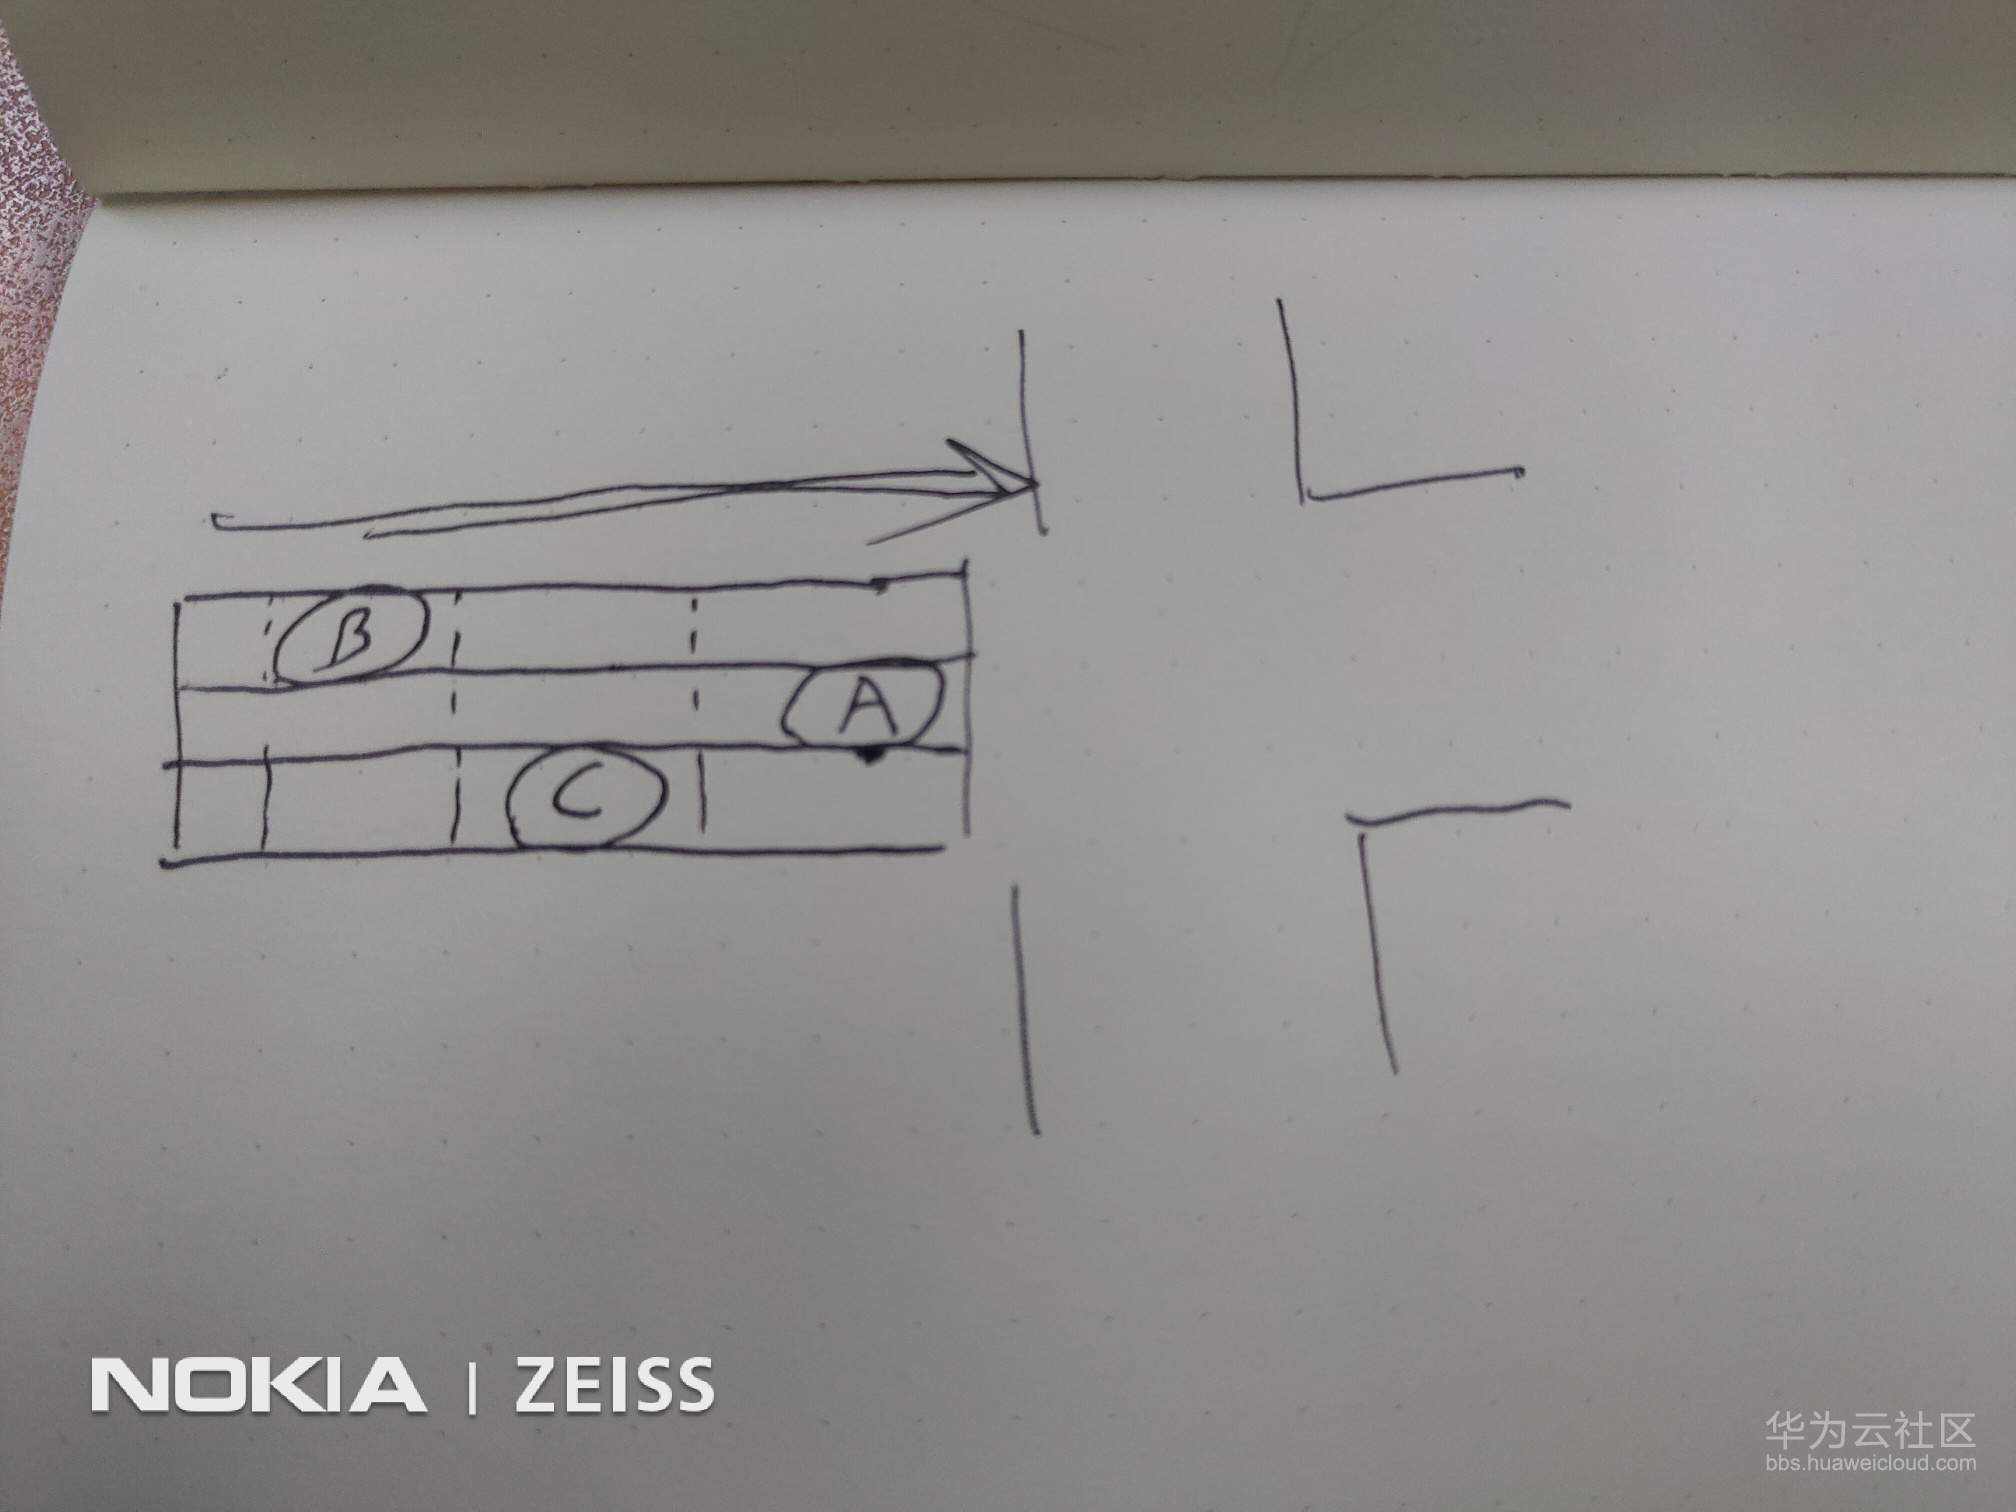 B
A
C
NOKIA | ZEISS
华为云社区
bbs.huaweicloud.com